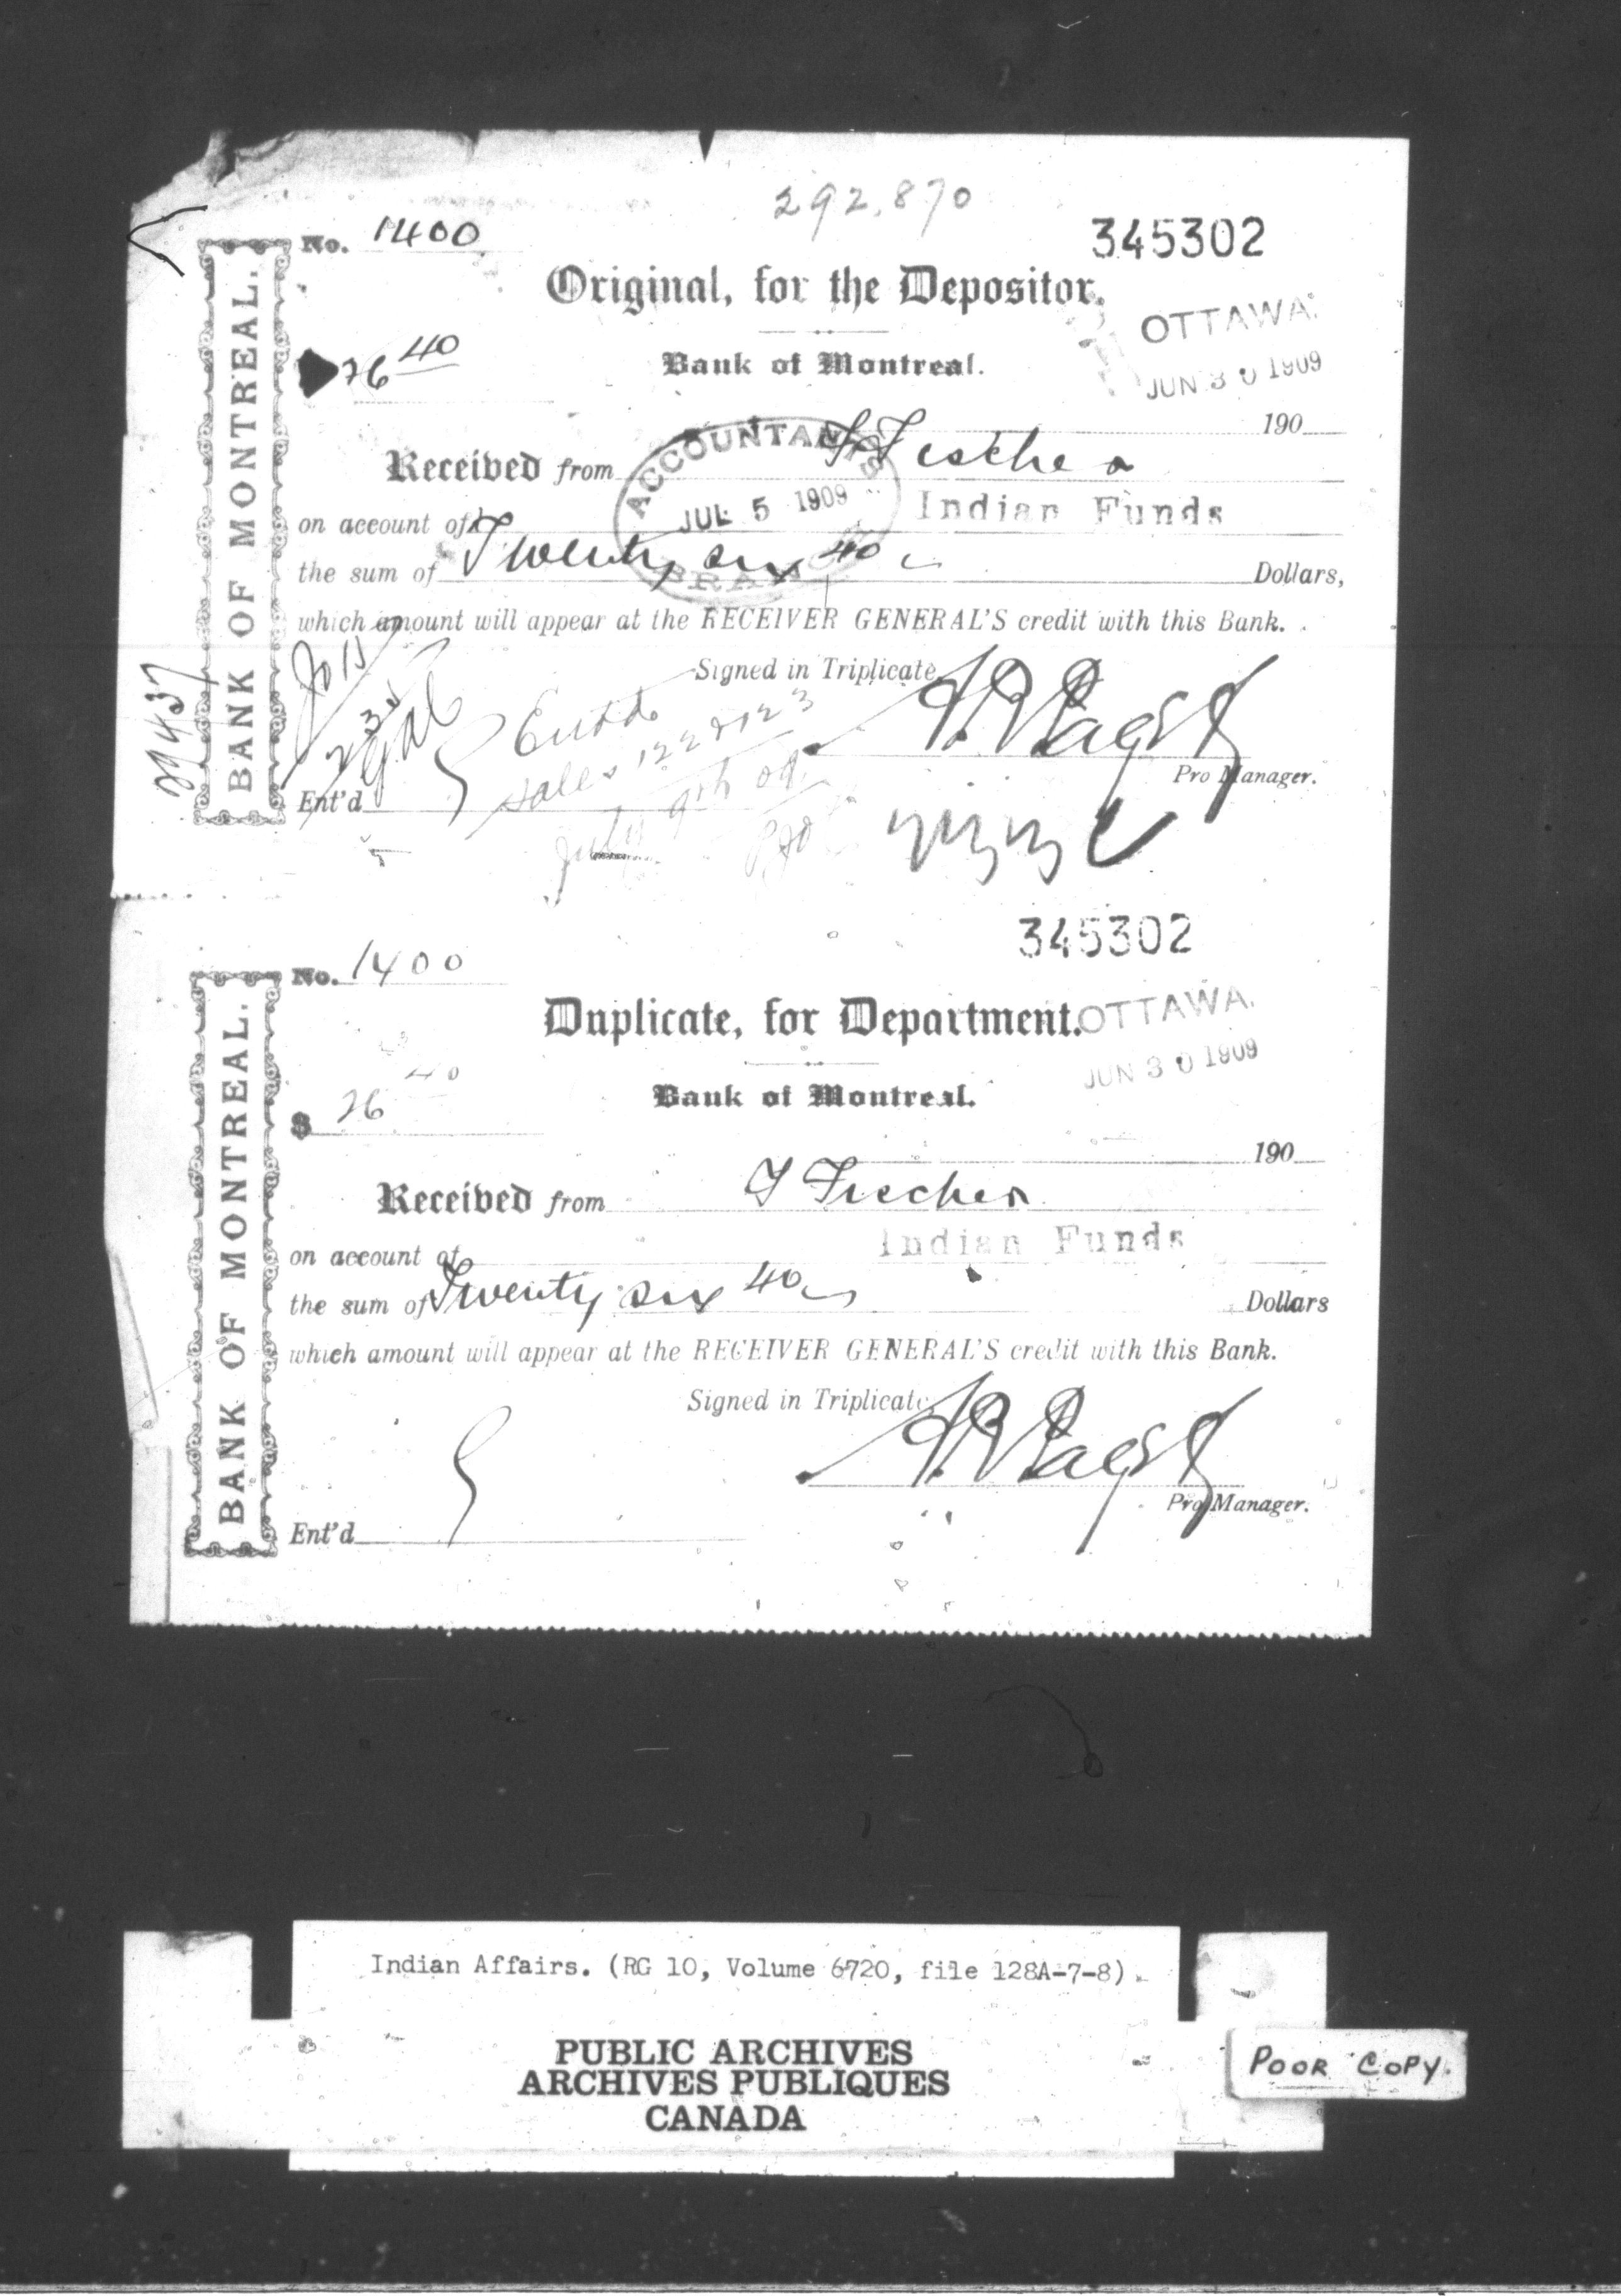 292,870
No. 1400
345302
Original, for the Depositor.
OTTAWA.
JUN 30 1909
26 40
Bank of Montreal.
190
Received from
ACCOUNTANT'S
JUL 5 1909
BRANCH
on account of Indian Funds
the sum of Twenty six 40 Dollars,
which amount will appear at the RECEIVER GENERAL'S credit with this Bank.
Signed in Triplicate,
Pro Manager.
Ent'd
July 9th 09
BANK OF MONTREAL.
345302
No. 1400
Duplicate, for Department.
OTTAWA.
JUN 30 1909
Bank of Montreal.
$ 26 40
190
Received from
on account of Indian Funds
the sum of Twenty six 40 Dollars
which amount will appear at the RECEIVER GENERAL'S credit with this Bank.
Signed in Triplicate,
Pro Manager.
Ent'd
BANK OF MONTREAL.
Indian Affairs. (RG 10, Volume 6720, file 128A-7-8)
PUBLIC ARCHIVES
ARCHIVES PUBLIQUES
CANADA
POOR COPY.